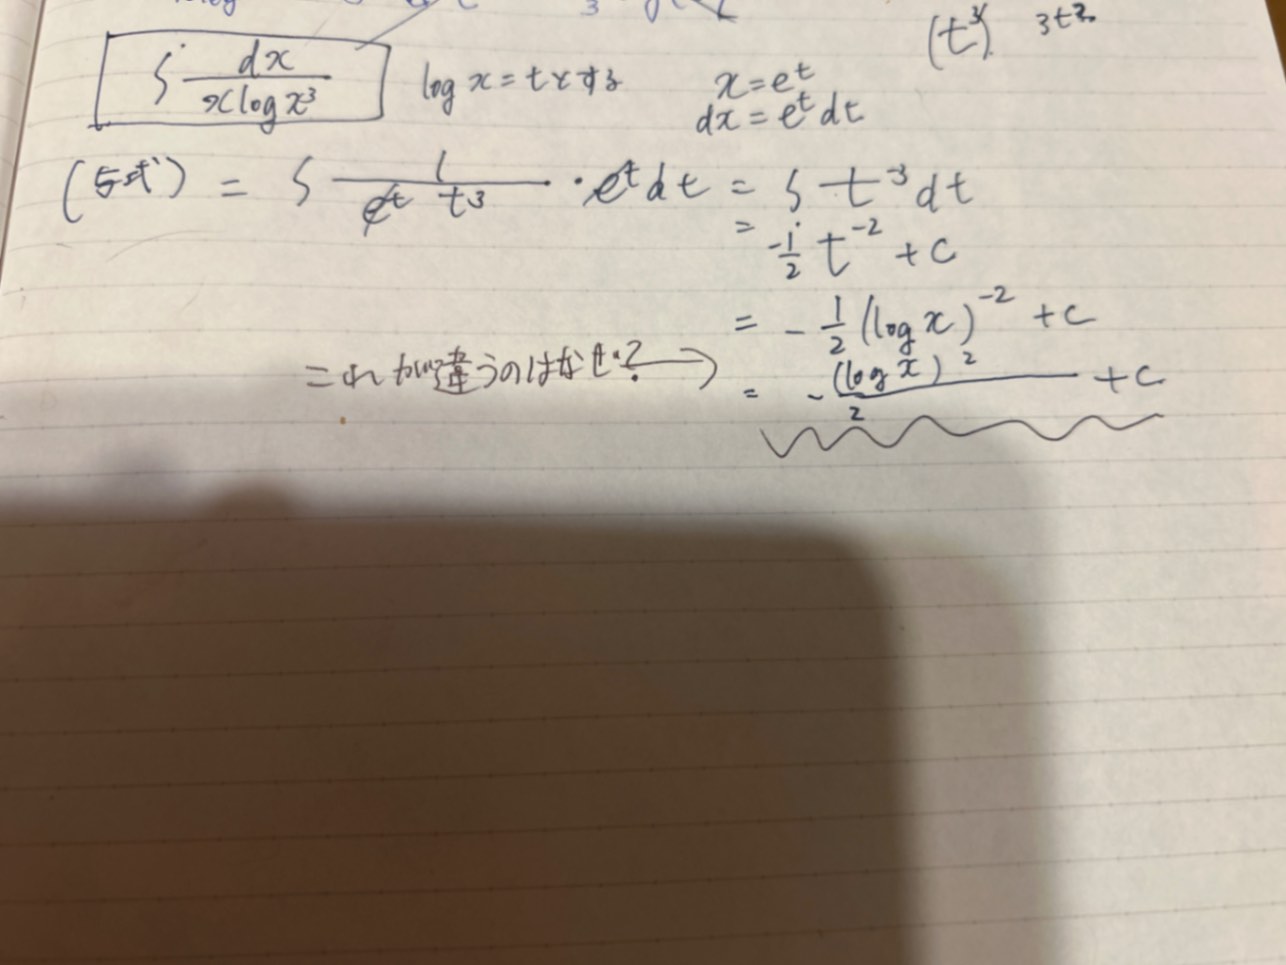 (t³) 3t²
∫ dx / x log x³ log x = t とする x = e^t
dx = e^t dt
(与式) = ∫ 1 / e^t t³ · e^t dt = ∫ t^-3 dt
= -1/2 t^-2 + C
= - 1/2 (log x)^-2 + C
これが違うのはなぜ? → = - (log x)² / 2 + C